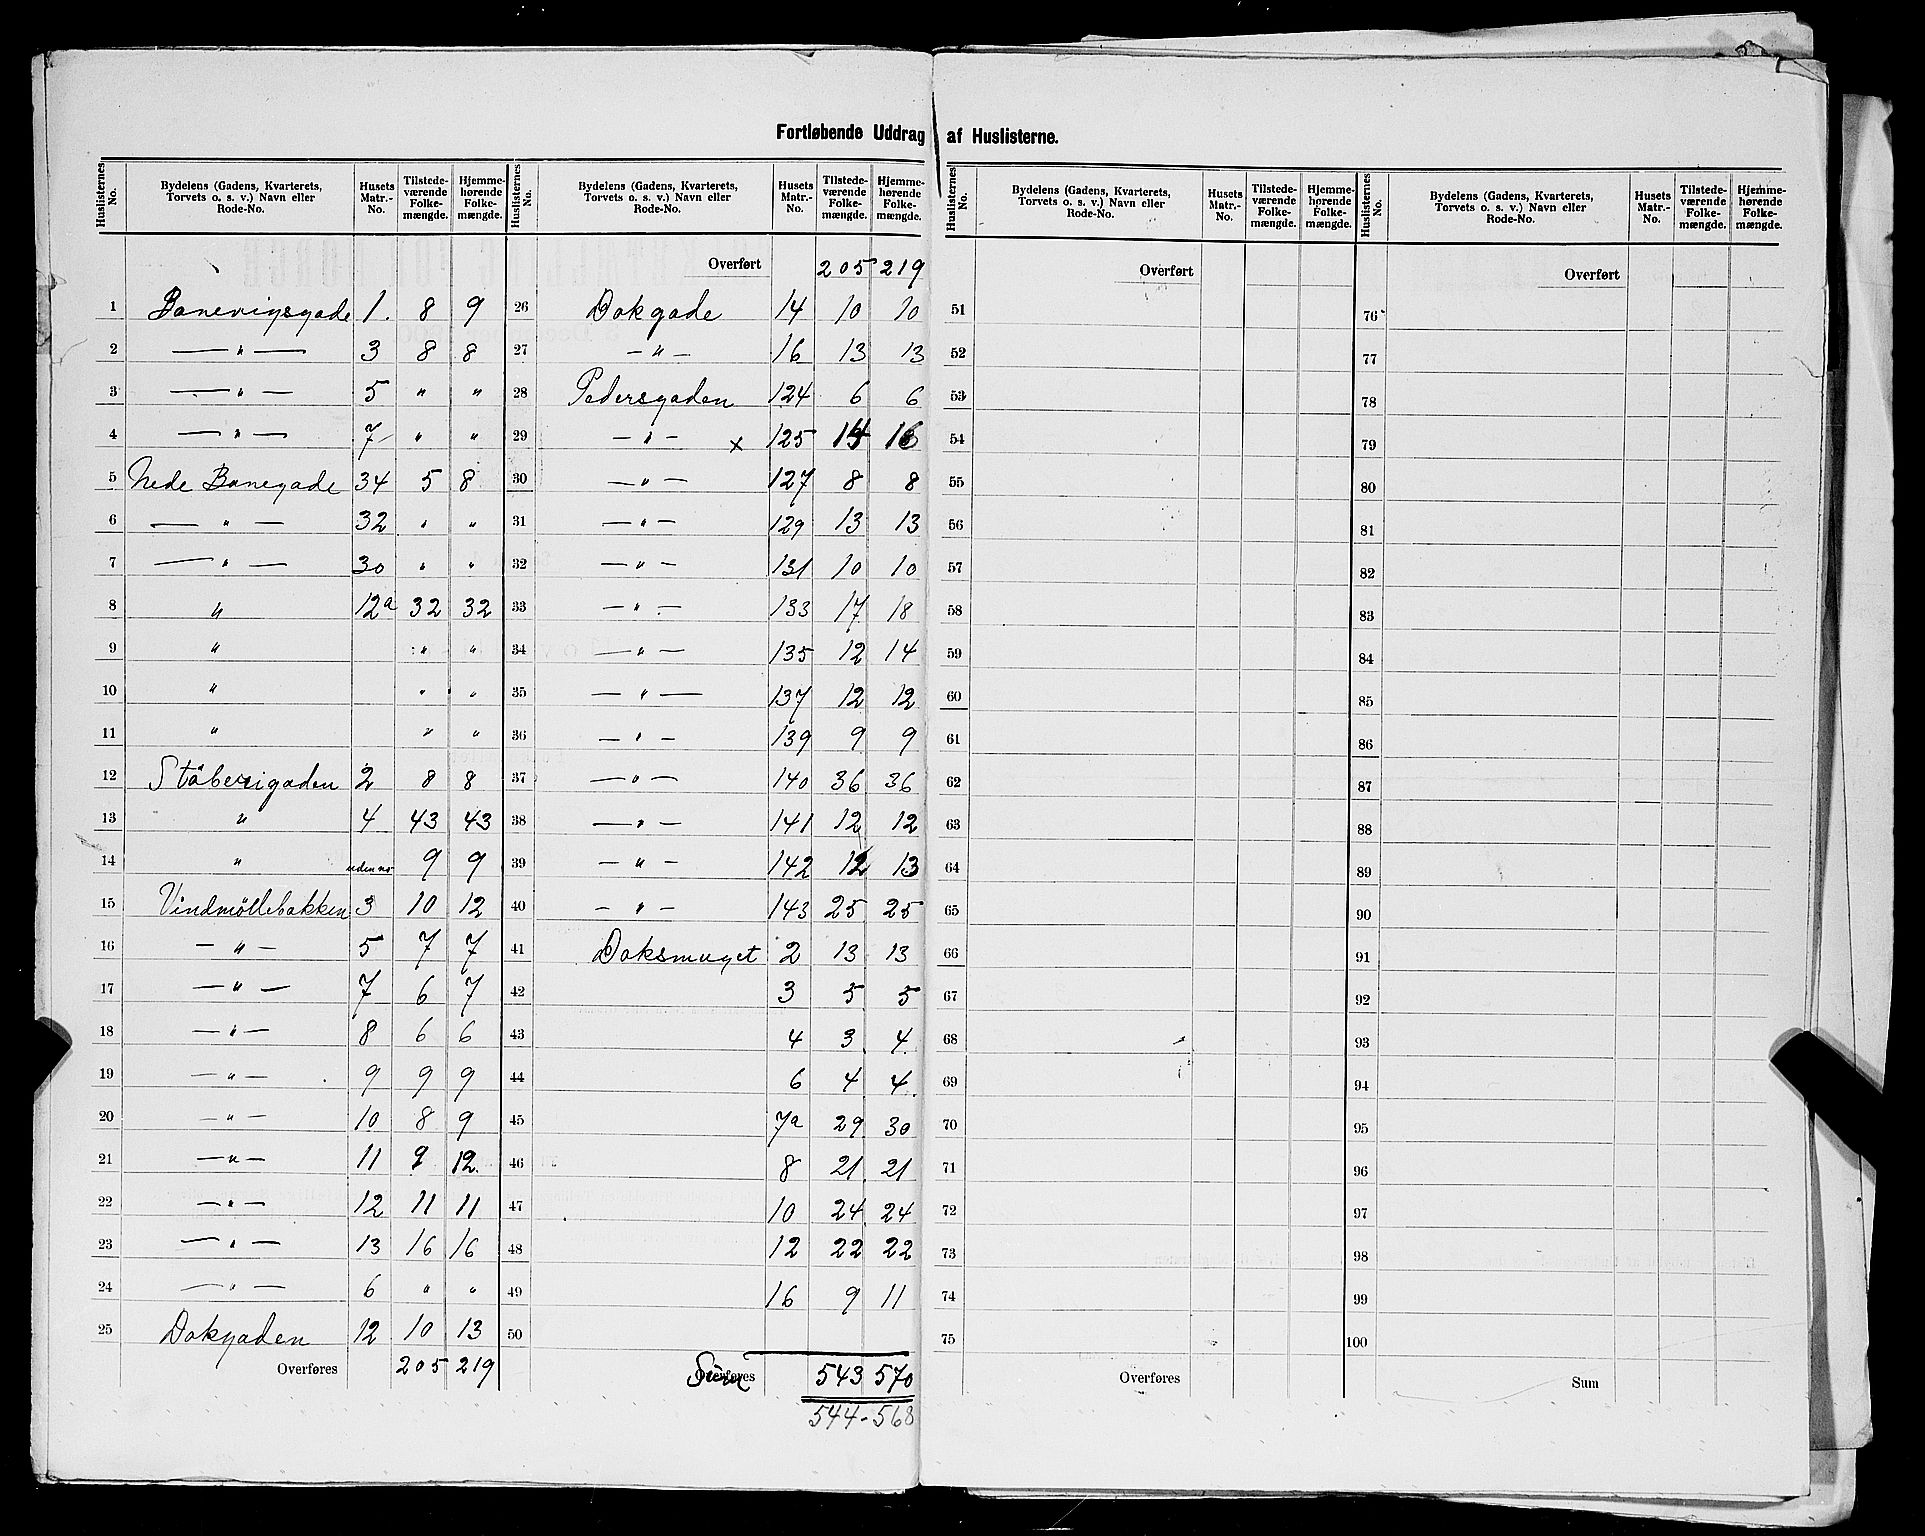 Fortløbende Uddrag af Huslisterne.
Huslisternes No. | Bydelens (Gadens, Kvarterets, Torvets o. s. v.) Navn eller Rode-No. | Husets Matr.-No. | Tilstede-værende Folke-mængde. | Hjemme-hørende Folke-mængde.
1 Banevigsgade 1. 8 9
2 — " — 3 8 8
3 — " — 5 " "
4 — " — 7 " "
5 Nede Banegade 34 5 8
6 — " — 32 " "
7 — " — 30 " "
8 " 12a 32 32
9 " " "
10 " " "
11 " " "
12 Støberigaden 2 8 8
13 " 4 43 43
14 " uden no 9 9
15 Vindmöllebakken 3 10 12
16 — " — 5 7 7
17 — " — 7 6 7
18 — " — 8 6 6
19 — " — 9 9 9
20 — " — 10 8 9
21 — " — 11 9 12
22 — " — 12 11 11
23 — " — 13 16 16
24 — " — 6 " "
25 Dokgaden 12 10 13
Overføres 205 219
Huslisternes No. | Bydelens (Gadens, Kvarterets, Torvets o. s. v.) Navn eller Rode-No. | Husets Matr.-No. | Tilstede-værende Folke-mængde. | Hjemme-hørende Folke-mængde.
Overført 205 219
26 Dokgade 14 10 10
27 — " — 16 13 13
28 Pedersgaden 124 6 6
29 — " — x 125 16
30 — " — 127 8 8
31 — " — 129 13 13
32 — " — 131 10 10
33 — " — 133 17 18
34 — " — 135 12 14
35 — " — 137 12 12
36 — " — 139 9 9
37 — " — 140 36 36
38 — " — 141 12 12
39 — " — 142 12 13
40 — " — 143 25 25
41 Doksmuget 2 13 13
42 3 5 5
43 4 3 4
44 6 4 4
45 7a 29 30
46 8 21 21
47 10 24 24
48 12 22 22
49 16 9 11
50
Overføres Sum 543 570
544 - 568
Huslisternes No. | Bydelens (Gadens, Kvarterets, Torvets o. s. v.) Navn eller Rode-No. | Husets Matr.-No. | Tilstede-værende Folke-mængde. | Hjemme-hørende Folke-mængde.
Overført
51
52
53
54
55
56
57
58
59
60
61
62
63
64
65
66
67
68
69
70
71
72
73
74
75
Overføres
Huslisternes No. | Bydelens (Gadens, Kvarterets, Torvets o. s. v.) Navn eller Rode-No. | Husets Matr.-No. | Tilstede-værende Folke-mængde. | Hjemme-hørende Folke-mængde.
Overført
76
77
78
79
80
81
82
83
84
85
86
87
88
89
90
91
92
93
94
95
96
97
98
99
100
Sum